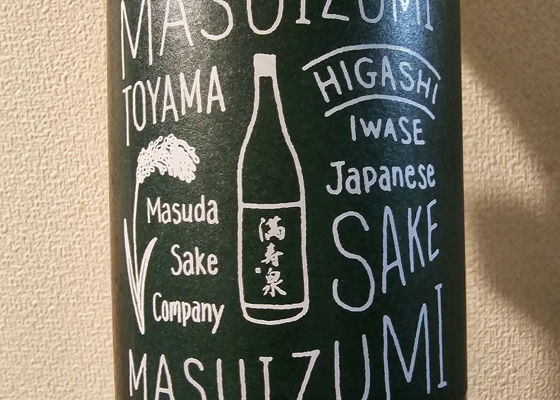 MASUIZUMI
TOYAMA
HIGASHI
IWASE
Japanese
SAKE
Masuda
Sake
Company
満寿泉
MASUIZUMI